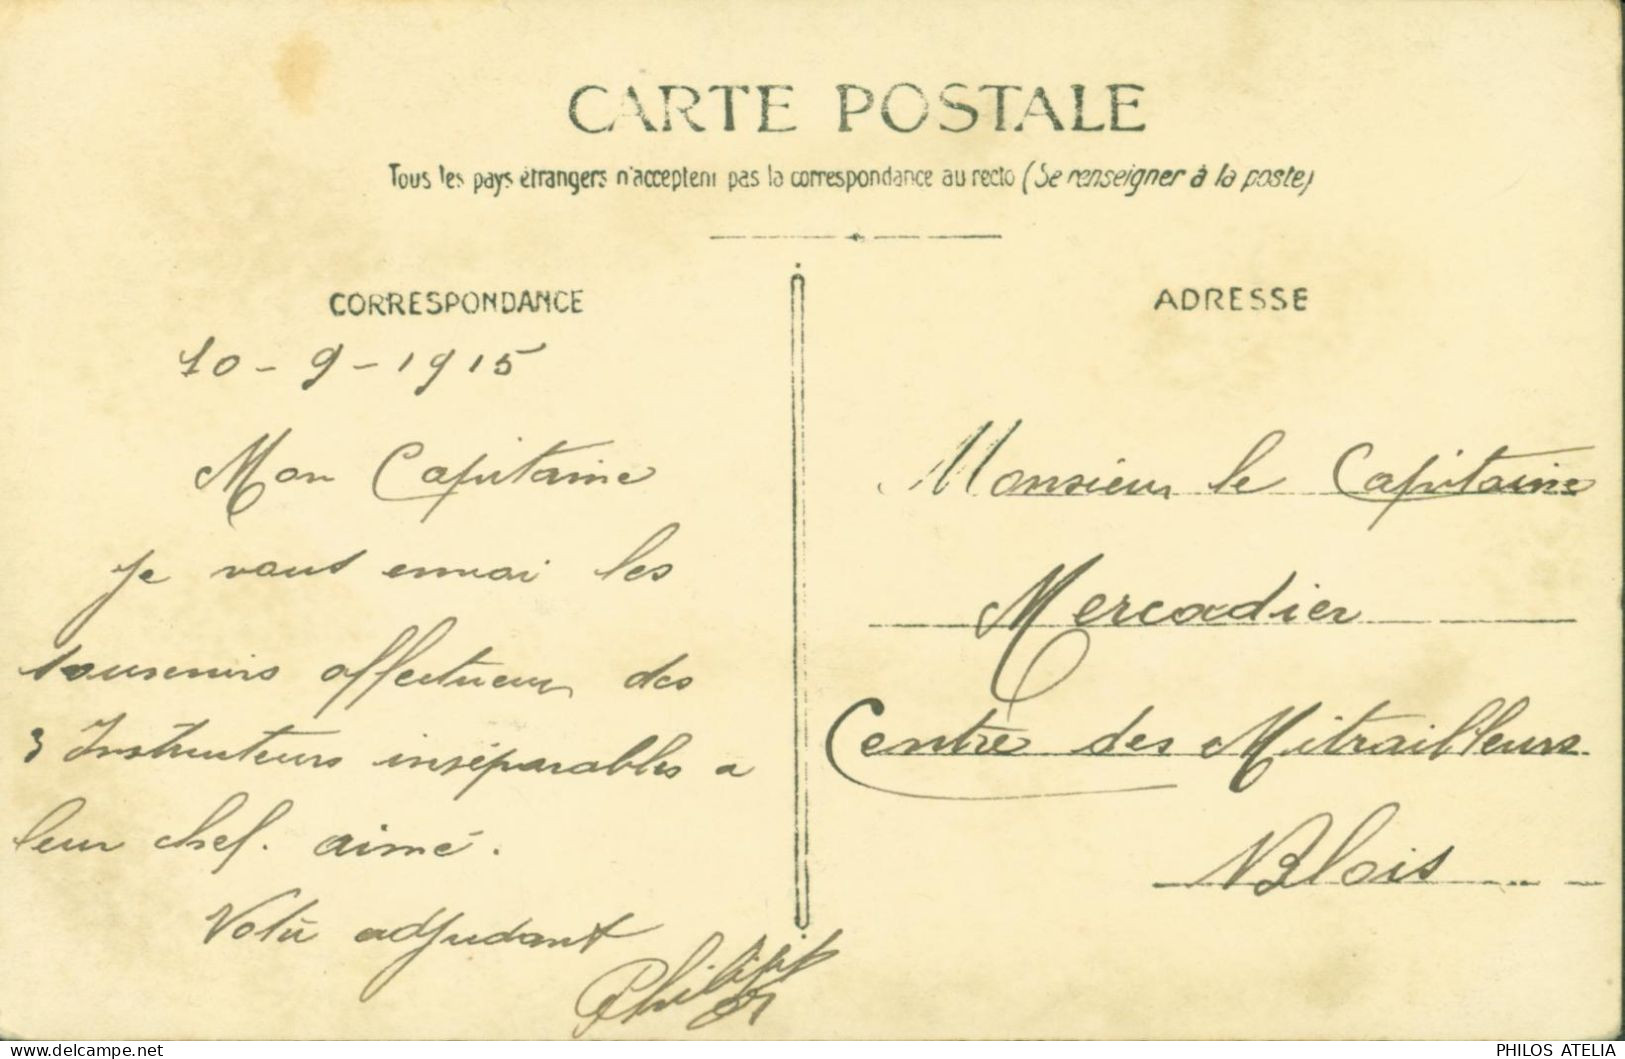 CARTE POSTALE
Tous les pays étrangers n'acceptent pas la correspondance au recto (Se renseigner à la poste)
CORRESPONDANCE
10-9-1915
Mon Capitaine
je vous envoi les
souvenirs affectueux des
3 Instructeurs inséparables a
leur chef. aimé.
Votre adjudant
ADRESSE
Monsieur le Capitaine
Mercadier
Centre des Mitrailleurs
Blois
PHILOS ATELIA